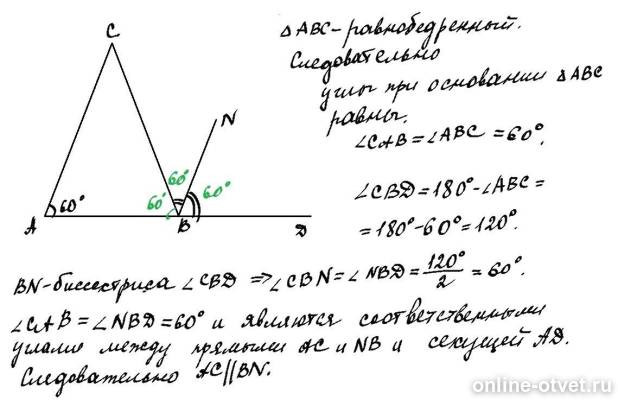 △ABC-равнобедренный.
Следовательно
углы при основании △ABC
равны.
∠CAB=∠ABC=60°.
∠CBD=180°-∠ABC=
=180°-60°=120°.
C
N
60°
60°
60°
60°
A
B
D
BN-биссектриса ∠CBD ⇒∠CBN=∠NBD=120°/2=60°.
∠CAB=∠NBD=60° и являются соответственными
углами между прямыми AC и NB и секущей AD.
Следовательно AC||BN.
online-otvet.ru